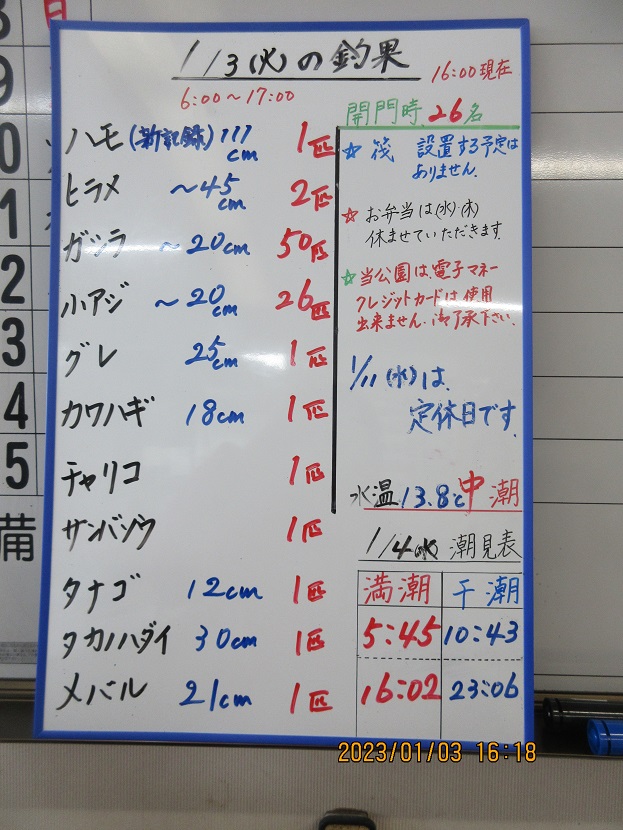 1/3(火)の釣果
16:00現在
6:00〜17:00
ハモ(新記録)111cm 1匹
ヒラメ 〜45cm 2匹
ガシラ 〜20cm 50匹
小アジ 〜20cm 26匹
グレ 25cm 1匹
カワハギ 18cm 1匹
チャリコ 1匹
サンバソウ 1匹
タナゴ 12cm 1匹
タカノハダイ 30cm 1匹
メバル 21cm 1匹
開門時26名
☆筏 設置する予定は
ありません。
☆お弁当は(水)・(木)
休ませていただきます。
☆当公園は、電子マネー
クレジットカードは使用
出来ません。御了承下さい。
1/11(水)は、
定休日です。
水温13.8℃ 中潮
1/4(水)潮見表
満潮 干潮
5:45 10:43
16:02 23:06
8 月
9
0
1
2
3
4
5
備
2023/01/03 16:18